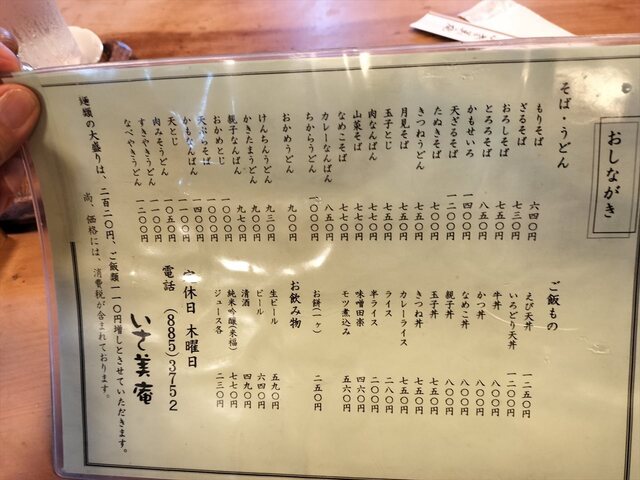 おしながき
そば・うどん
もりそば 六四〇円
ざるそば 七三〇円
おろしそば 七五〇円
とろろそば 八五〇円
かもせいろ 一四〇〇円
天ざるそば 一二〇〇円
たぬきそば 七〇〇円
きつねうどん 七五〇円
月見そば 七五〇円
玉子とじ 七五〇円
肉なんばん 七七〇円
山菜そば 七七〇円
なめこそば 七七〇円
カレーなんばん 八五〇円
ちからうどん 一〇〇〇円
おかめうどん 九〇〇円
けんちんうどん 九三〇円
かきたまうどん 九七〇円
親子なんばん 九七〇円
おかめとじ 一〇〇〇円
天ぷらそば 一〇〇〇円
かもなんばん 一四〇〇円
天とじ 一一〇〇円
肉みそうどん 一一五〇円
すきやきうどん 一一〇〇円
なべやきうどん 一二〇〇円
ご飯もの
えび天丼 一二五〇円
いろどり天丼 一二〇〇円
牛丼 八〇〇円
かつ丼 八〇〇円
なめこ丼 八〇〇円
親子丼 八〇〇円
玉子丼 七五〇円
きつね丼 七五〇円
カレーライス 七五〇円
ライス 二八〇円
半ライス 二〇〇円
味噌田楽 四六〇円
モツ煮込み 五六〇円
お餅(一ヶ) 二五〇円
お飲み物
生ビール 五九〇円
ビール 六四〇円
清酒 四九〇円
純米吟醸(来福) 七七〇円
ジュース各 二三〇円
定休日 木曜日
電話 (885)3752
いさ美庵
麺類の大盛りは、二百二〇円、ご飯類一一〇円増しとさせていただきます。
尚、価格には、消費税が含まれております。